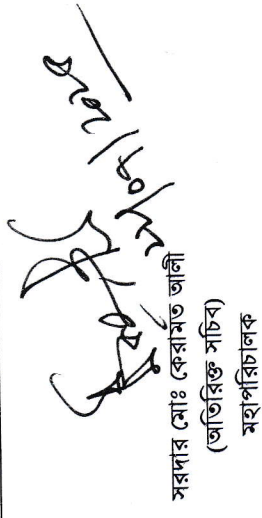 সরদার মোঃ কেরামত আলী
(অতিরিক্ত সচিব)
মহাপরিচালক